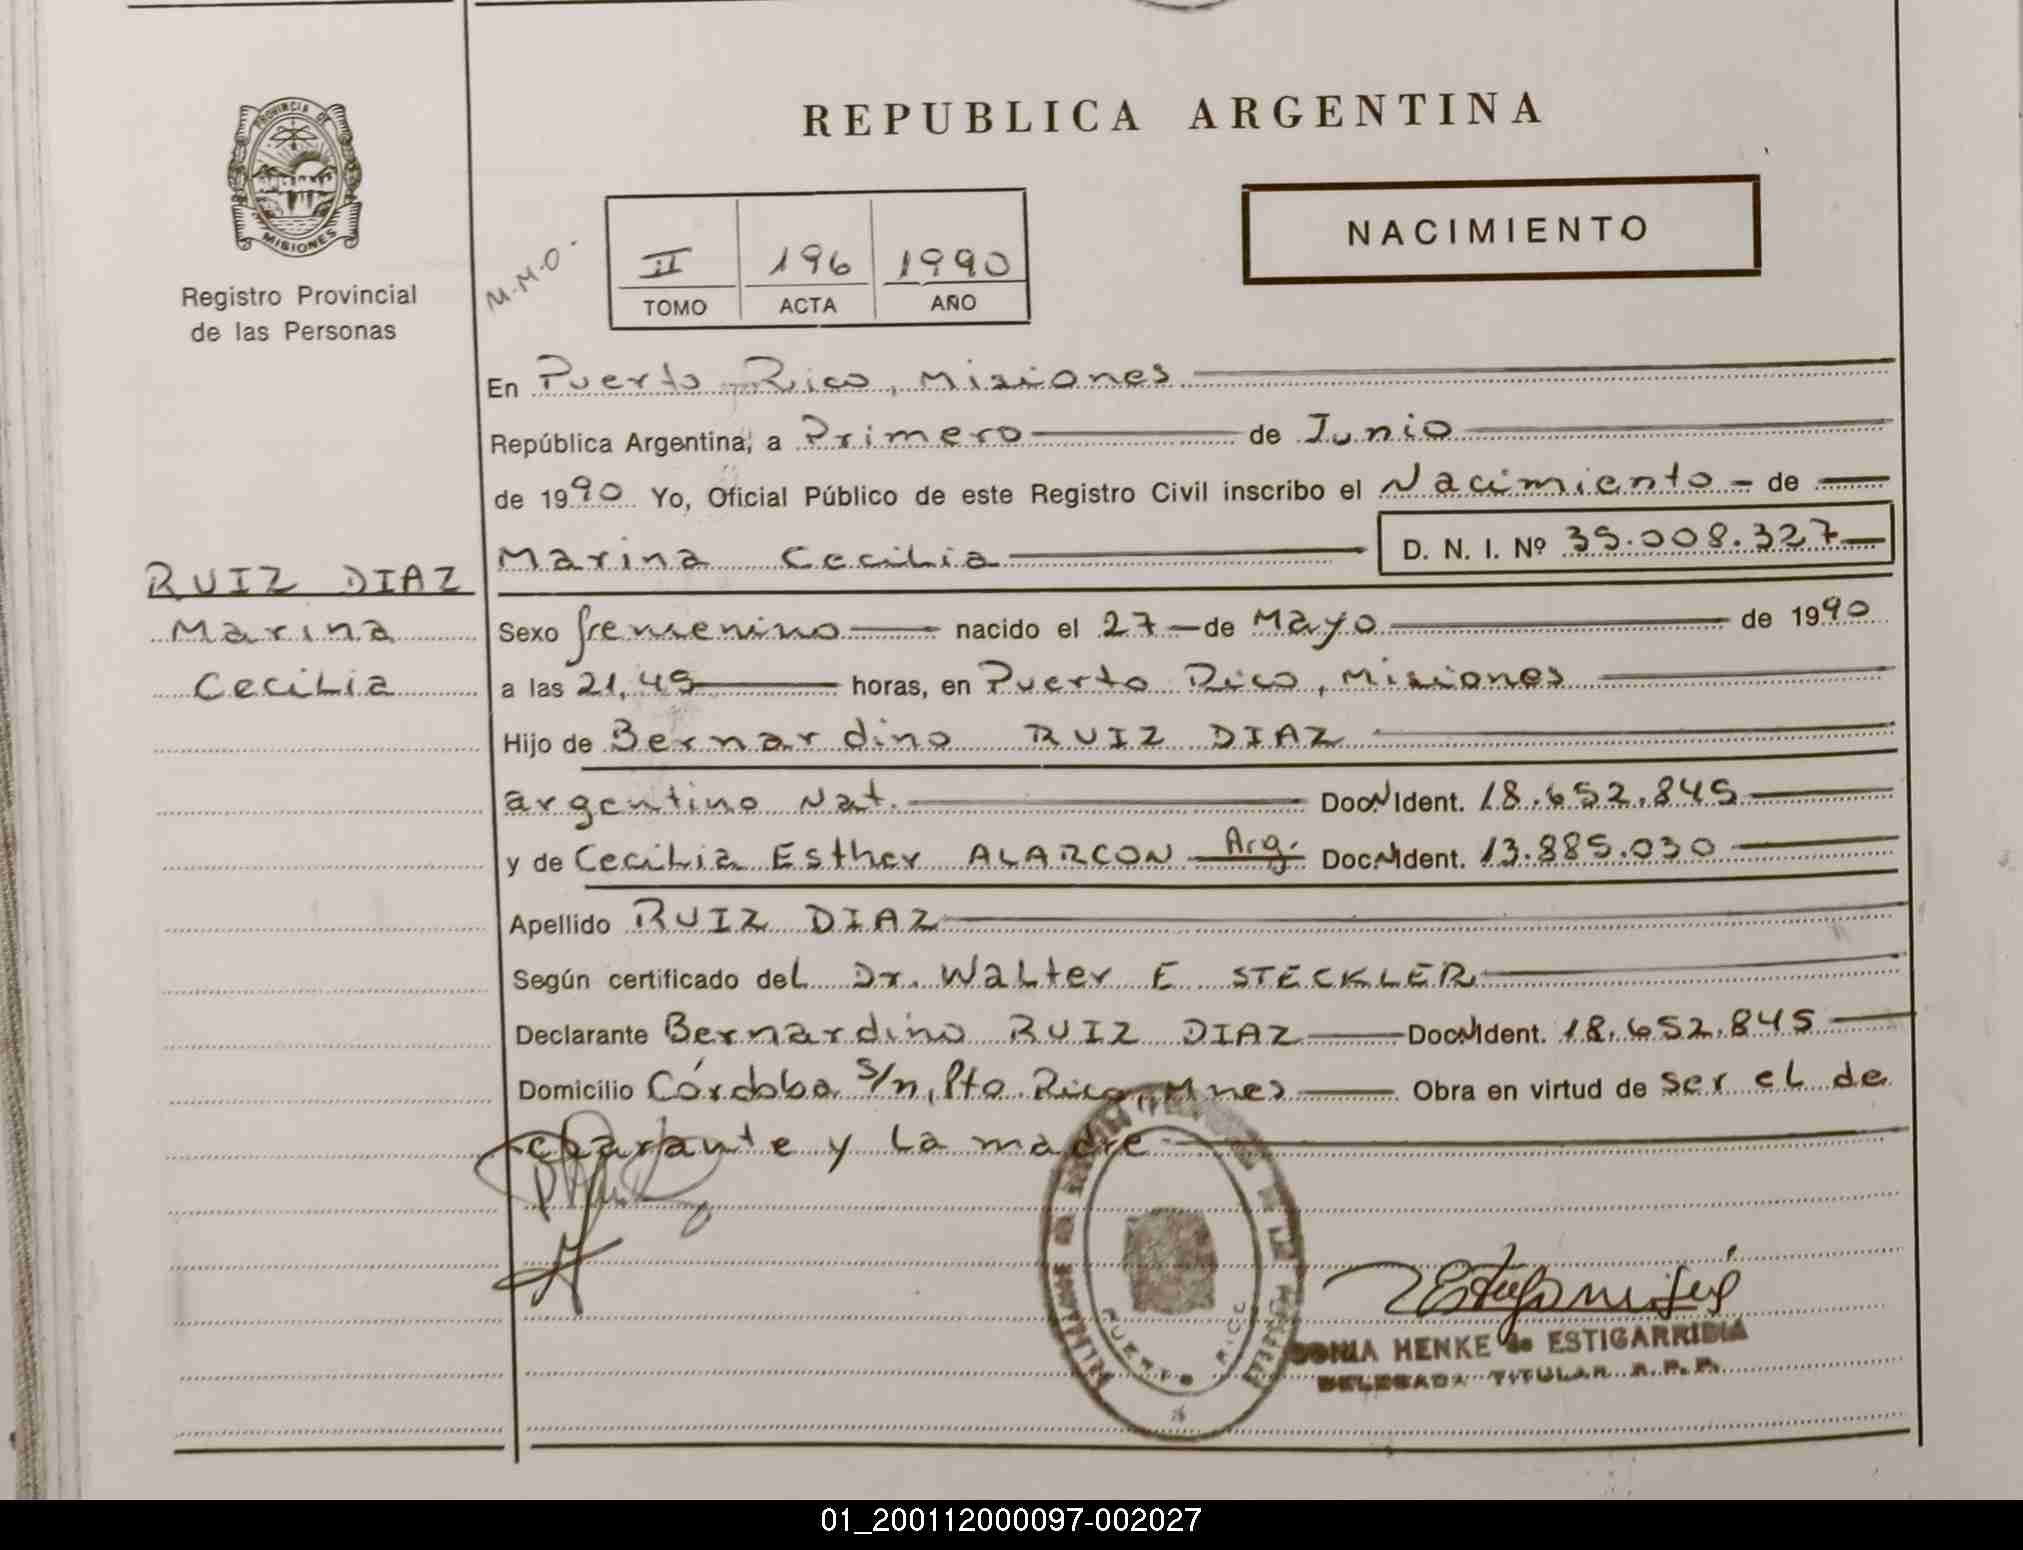 PROVINCIA DE
MISIONES
Registro Provincial
de las Personas
REPUBLICA ARGENTINA
NACIMIENTO
M.M.O-
II 196 1990
TOMO ACTA AÑO
En Puerto Rico, Misiones
República Argentina, a Primero de Junio
de 1990 Yo, Oficial Público de este Registro Civil inscribo el Nacimiento - de
Marina Cecilia D. N. I. Nº 35.008.327
RUIZ DIAZ
Marina
Cecilia
Sexo femenino nacido el 27 - de Mayo de 1990
a las 21,45 horas, en Puerto Rico, Misiones
Hijo de Bernardino RUIZ DIAZ
argentino Nat. Doc. N Ident. 18.652.845
y de Cecilia Esther ALARCON Arg. Doc. N Ident. 13.885.030
Apellido RUIZ DIAZ
Según certificado del Dr. Walter E STECKLER
Declarante Bernardino RUIZ DIAZ Doc. N Ident. 18.652.845
Domicilio Córdoba s/n, Pto. Rico, Mnes Obra en virtud de ser el de
clarante y la madre
PUERTO RICO
SONIA HENKE de ESTIGARRIBIA
DELEGADA TITULAR R.P.P.
01_200112000097-002027